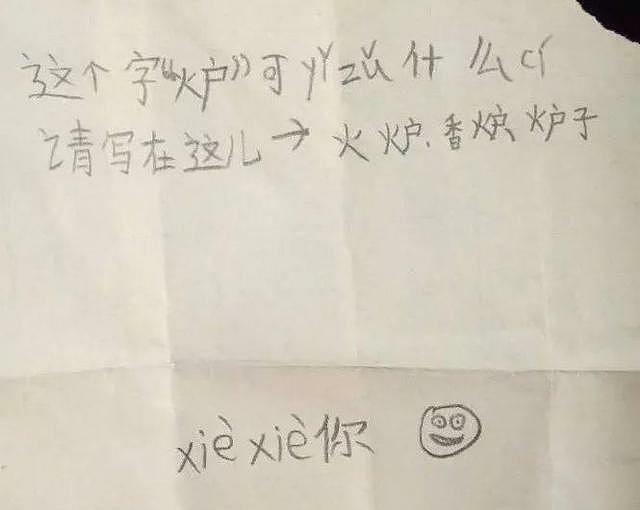 这个字“炉”可yǐzǔ什么cí
请写在这儿→火炉、香炉、炉子
xiè xiè你